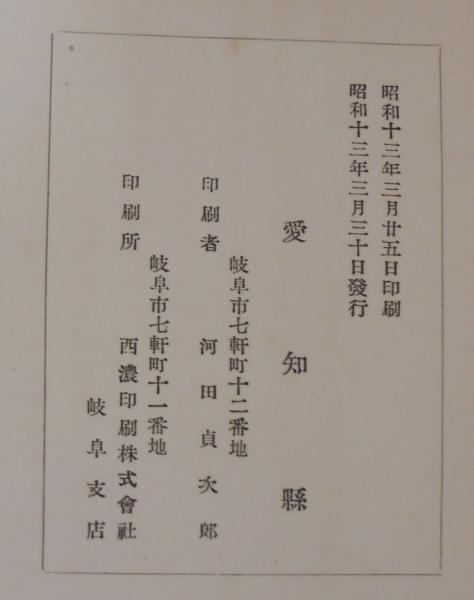 昭和十三年三月廿五日印刷
昭和十三年三月三十日發行
愛知縣
岐阜市七軒町十二番地
印刷者 河田貞次郎
岐阜市七軒町十一番地
印刷所 西濃印刷株式會社
岐阜支店